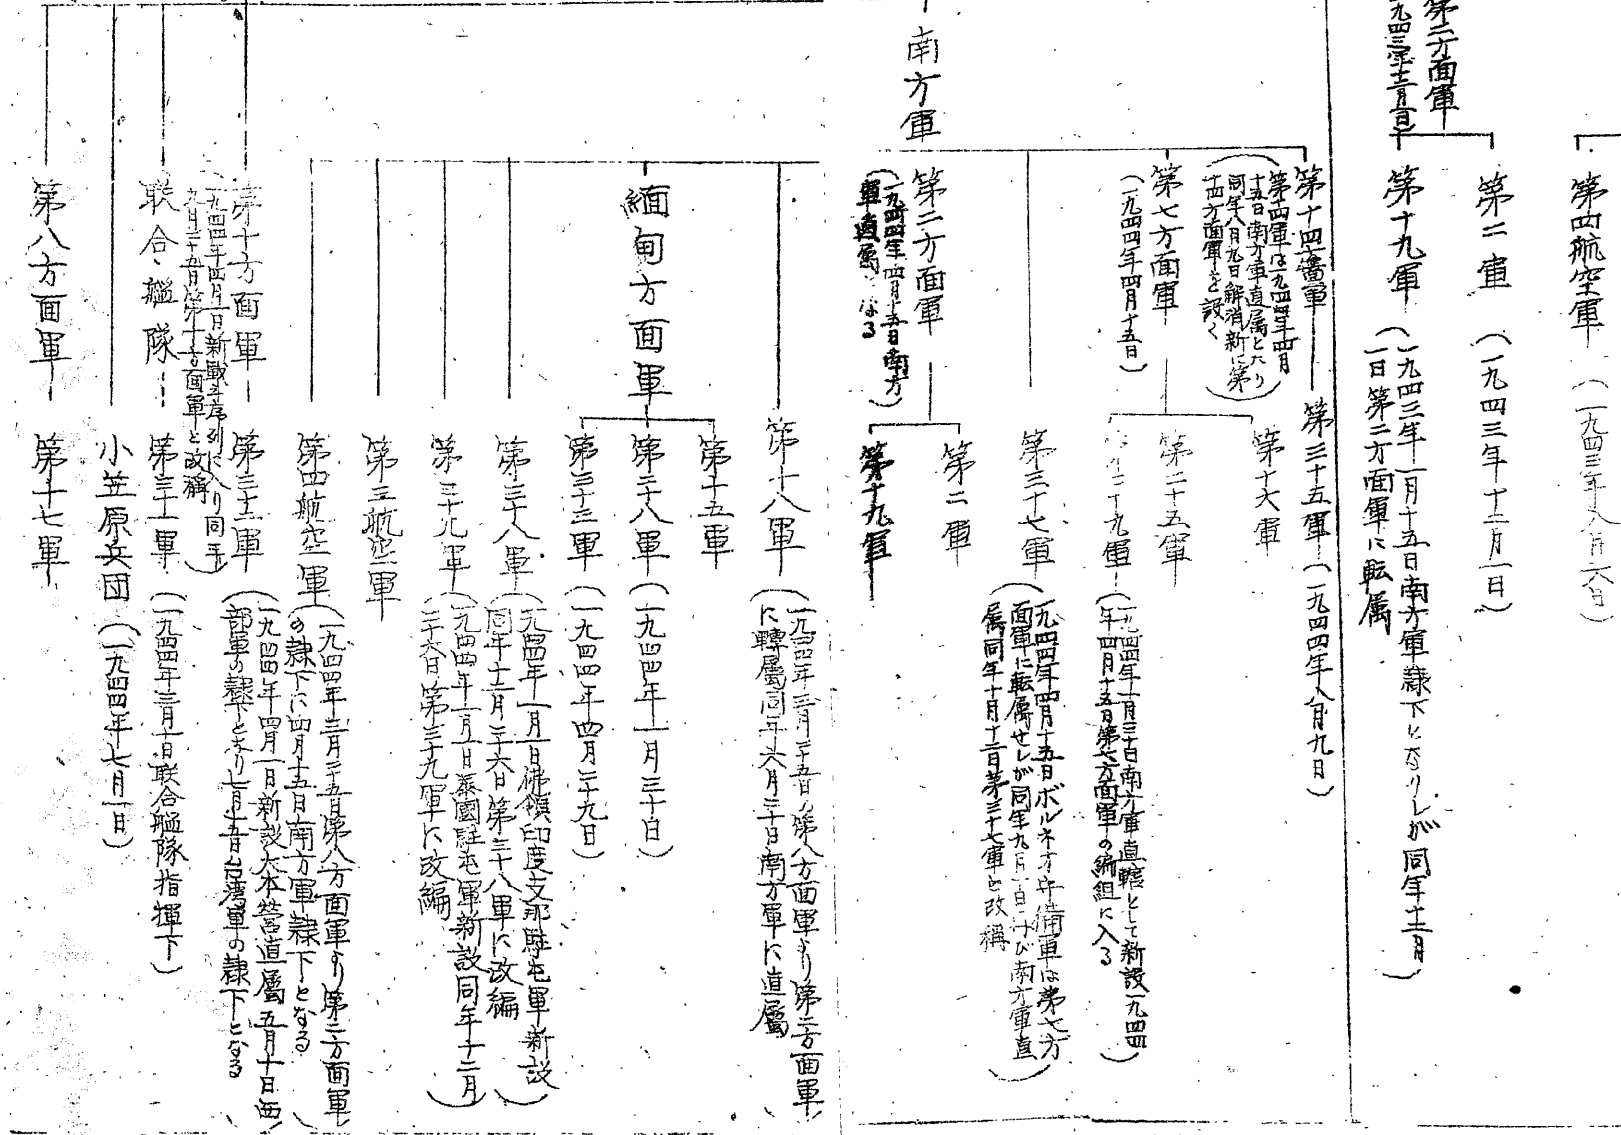 第四航空軍
(一九四三年八月六日)
第二方面軍
第二軍
(一九四三年十二月一日)
第十九軍
(一九四三年一月十五日南方軍隷下となりしが同年十二月
一日第二方面軍に転属)
南方軍
第十四方面軍
(第十四軍は一九四四年四月
十五日南方軍直属となり
同年八月九日解消新に第
十四方面軍を設く)
第三十五軍
(一九四四年八月九日)
第七方面軍
(一九四四年四月十五日)
第十六軍
第二十五軍
第二十九軍
(一九四四年一月三十日南方軍直轄として新設一九四四
年四月十五日第七方面軍の編組に入る)
第三十七軍
(一九四四年四月十五日ボルネオ守備軍は第七方
面軍に転属せしが同年九月一日二十び南方軍直
属同年十月十二日第三十七軍と改稱)
第二方面軍
(一九四四年四月十五日南方
軍直属となる)
第二軍
第十九軍
第十八軍
(一九四四年三月二十五日第八方面軍より第二方面軍
に轉属同年六月二十日南方軍に直屬)
緬甸方面軍
第十五軍
第二十八軍
(一九四四年一月三十日)
第三十三軍
(一九四四年四月二十九日)
第三十八軍
(一九四四年一月一日佛領印度支那駐屯軍新設
同年十二月二十六日第三十八軍に改編)
第三十九軍
(一九四四年一月一日泰國駐屯軍新設同年十二月
二十六日第三十九軍に改編)
第三航空軍
第四航空軍
(一九四四年三月二十五日第八方面軍より第二方面軍
の隷下に四月十五日南方軍隷下となる)
第十方面軍
(一九四四年四月一日新戰斗序列に入り同年
九月二十九日第十方面軍と改稱)
第三十二軍
(一九四四年四月一日新設大本営直屬五月十日西
部軍の隷下となり七月十五日台湾軍の隷下となる)
联合艦隊
第三十一軍
(一九四四年三月十日联合艦隊指揮下)
小笠原兵団
(一九四四年七月一日)
第八方面軍
第十七軍